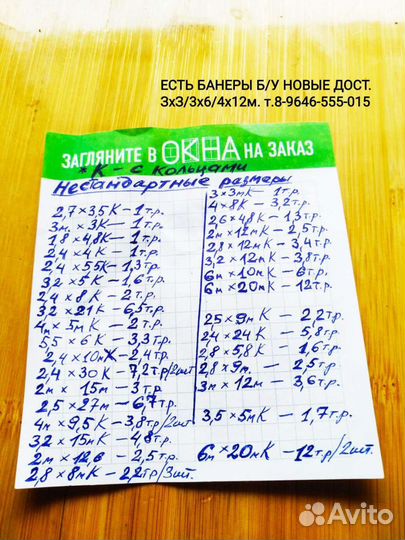 ЕСТЬ БАНЕРЫ Б/У НОВЫЕ ДОСТ.
3х3/3х6/4х12м. т.8-9646-555-015
ЗАГЛЯНИТЕ В ОКНА НА ЗАКАЗ
*К - с кольцами
Нестандартные размеры
2,7×3,5К — 1т.р.
3м × 3К — 1т.р.
1,8 × 4,8К — 1т.р.
2,4 × 4К — 1т.р.
2,4 × 5,5К — 1,3т.р.
3,2 × 5К — 1,6т.р.
2,4 × 8К — 2т.р.
3,2 × 21К — 6,5т.р.
4м × 5мК — 2т.р.
5,5 × 6К — 3,3т.р.
2,4 × 10мК — 2,4т.р.
2,4 × 30К — 7,2т.р/2шт
2м × 15м — 3т.р.
2,5 × 27м — 6,7т.р.
4м × 9,5К — 3,8т.р/2шт
3,2 × 15мК — 4,8т.р.
2м × 12,6 — 2,5т.р.
2,8 × 8мК — 2,2тр/3шт.
3×3мК — 1т.р.
4×8К — 3,2т.р.
2,6×4,8К — 1,3т.р.
2м×12мК — 2,5т.р.
2,8×12мК — 3,4т.р.
3,2×12мК — 3,8т.р.
6м×10мК — 6т.р.
6м×20мК — 12т.р.
2,5×9мК — 2,2т.р.
2,4×24К — 5,8т.р.
2,8×5,8К — 1,6т.р.
2,8×9м — 2,5т.р
3м×12м — 3,6т.р.
3,5×5мК — 1,7т.р.
6м×20мК — 12тр/2шт.
Avito